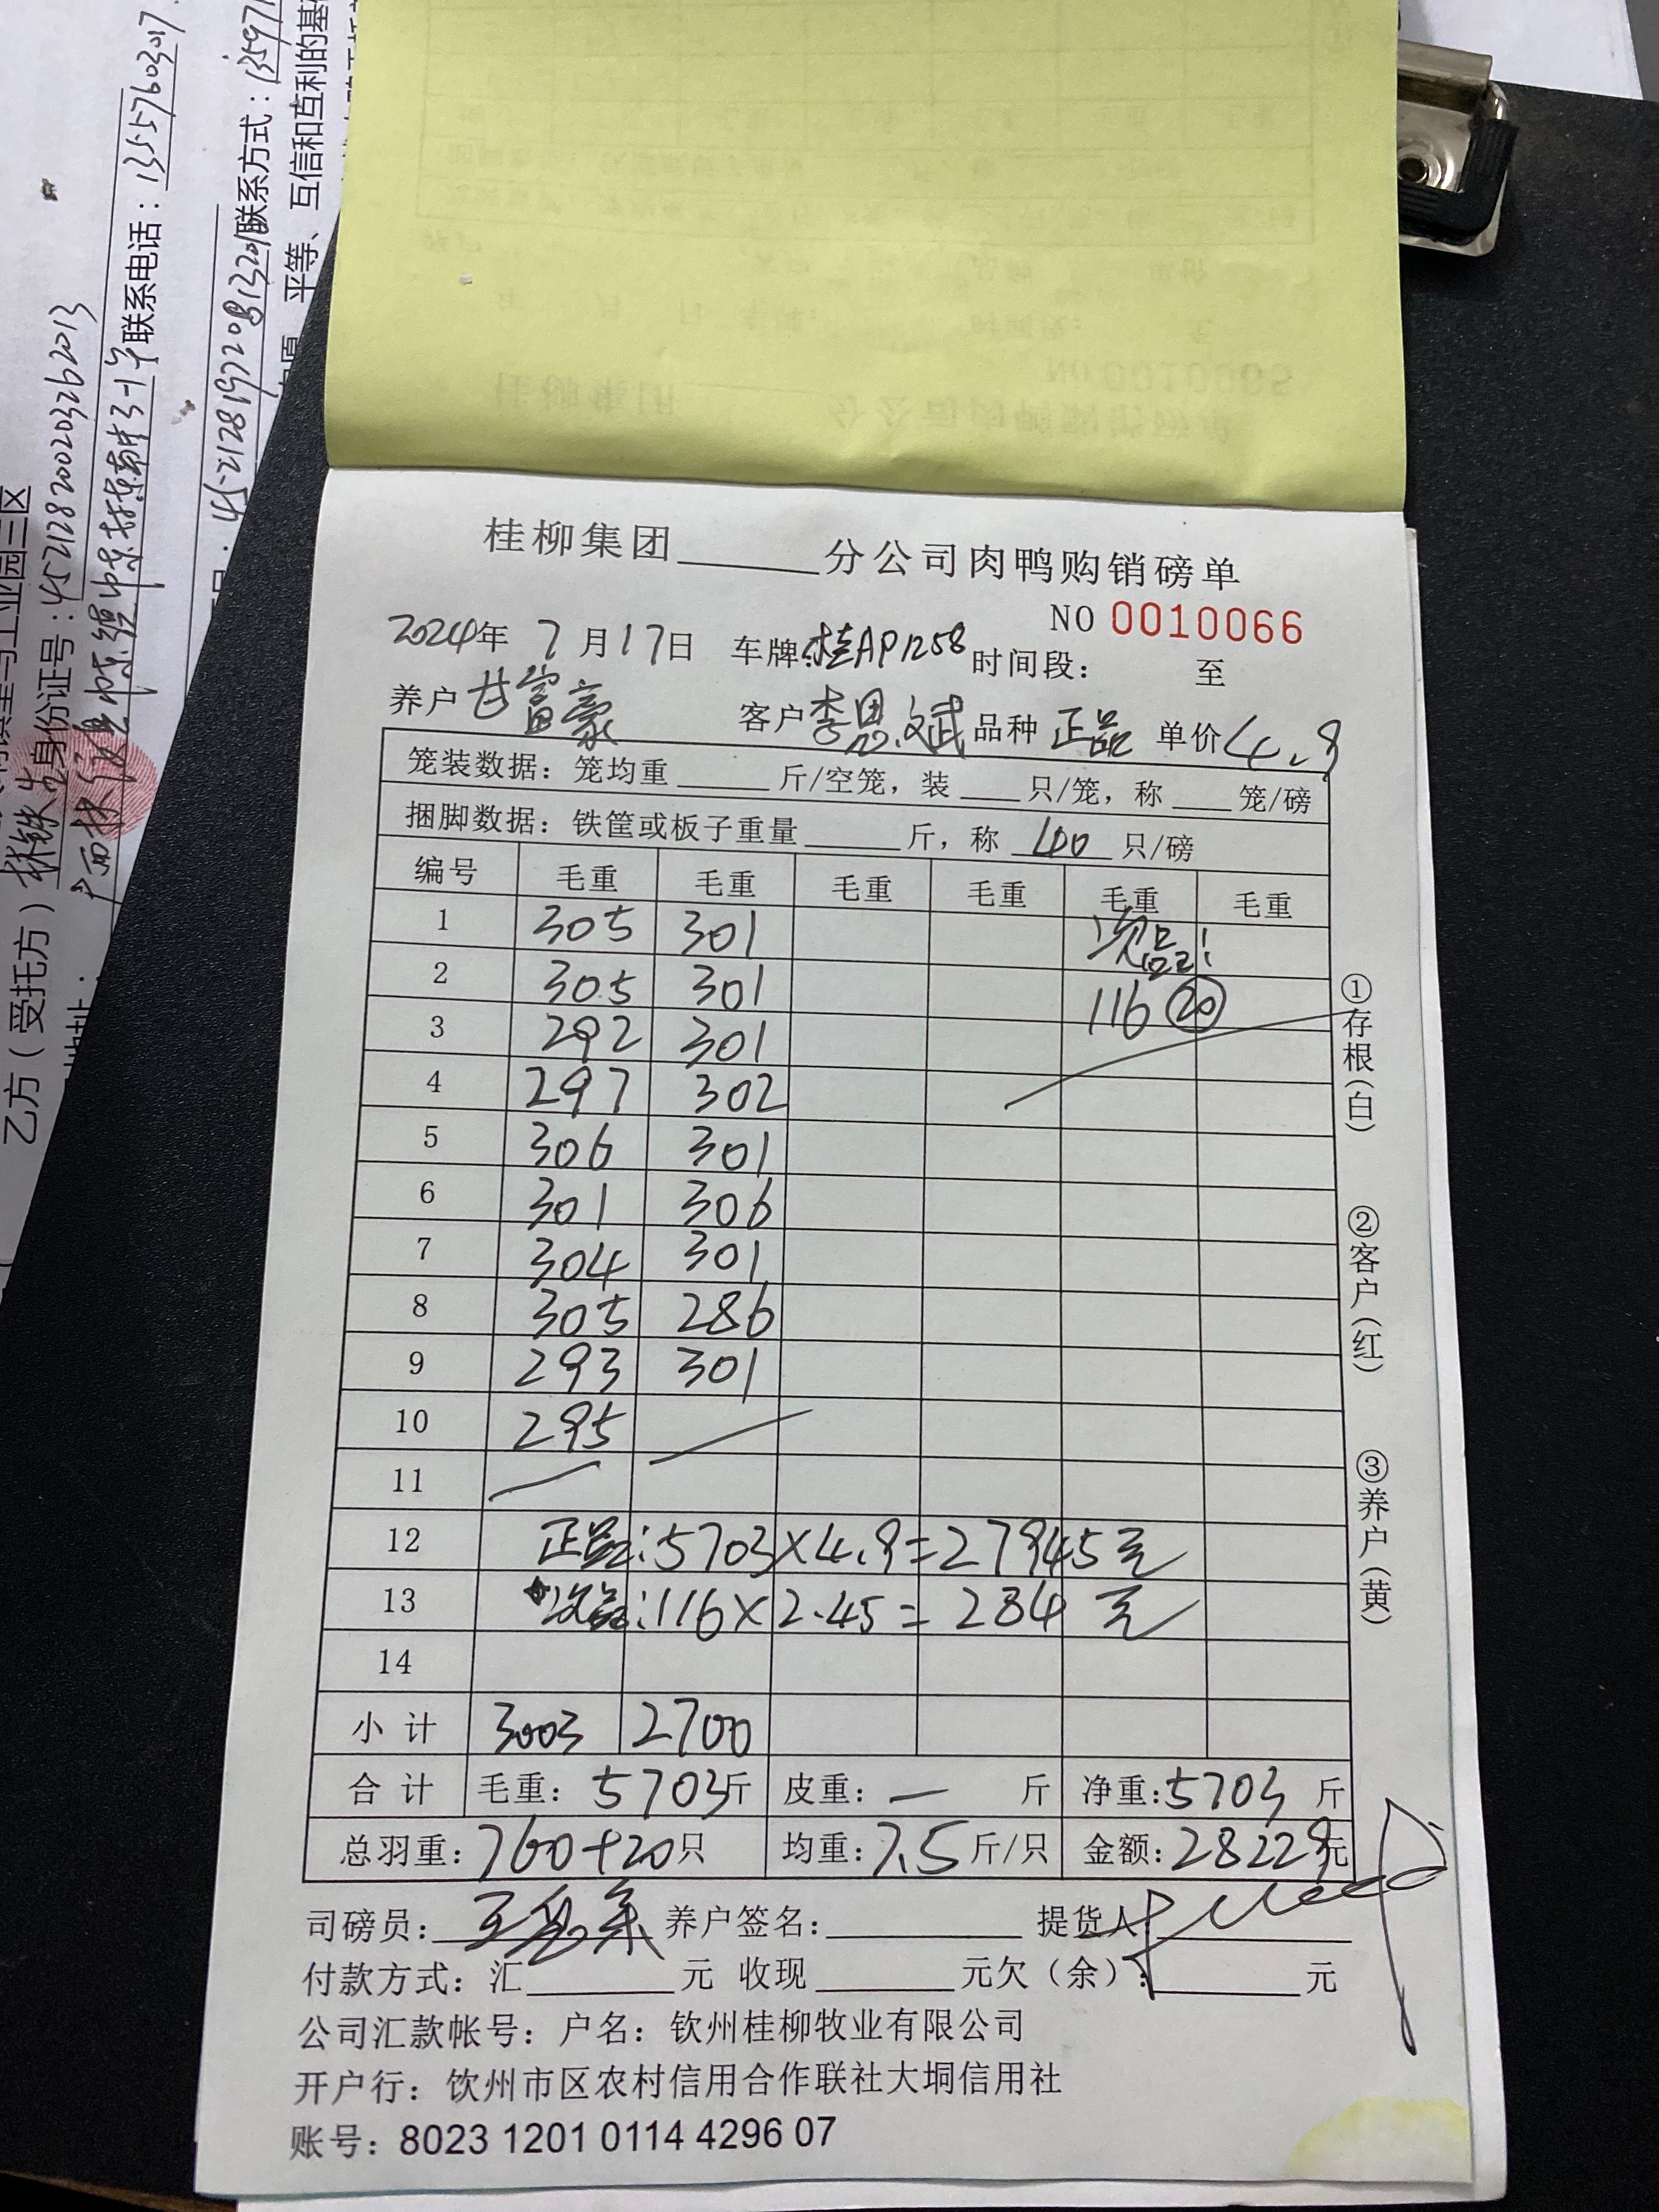 桂柳集团______分公司肉鸭购销磅单
NO 0010066
2024年 7月17日 车牌:桂AP1258 时间段: 至
养户 甘富豪 客户 李思斌 品种 正品 单价 4.9
笼装数据：笼均重____斤/空笼，装___只/笼，称___笼/磅
捆脚数据：铁筐或板子重量_____斤，称 40 只/磅
编号 毛重 毛重 毛重 毛重 毛重 毛重
1 305 301 次品:
2 305 301 116 ⑳
3 292 301
4 297 302
5 306 301
6 301 306
7 304 301
8 305 286
9 293 301
10 295
11
12 正品:5703×4.9=27945元
13 次品:116×2.45=284元
14
小计 3003 2700
合计 毛重：5703斤 皮重：— 斤 净重:5703 斤
总羽重：760+20只 均重：7.5斤/只 金额:28229元
司磅员：______ 养户签名：______ 提货人
付款方式：汇______元 收现______元欠（余）：______元
公司汇款帐号：户名：钦州桂柳牧业有限公司
开户行：钦州市区农村信用合作联社大垌信用社
账号：8023 1201 0114 4296 07
①存根(白)
②客户(红)
③养户(黄)
乙方（受托方）
身份证号：452128200203262013
联系电话：13557603017
45212819720813201联系方式：13597
平等、互信和互利的基
NO 0010065